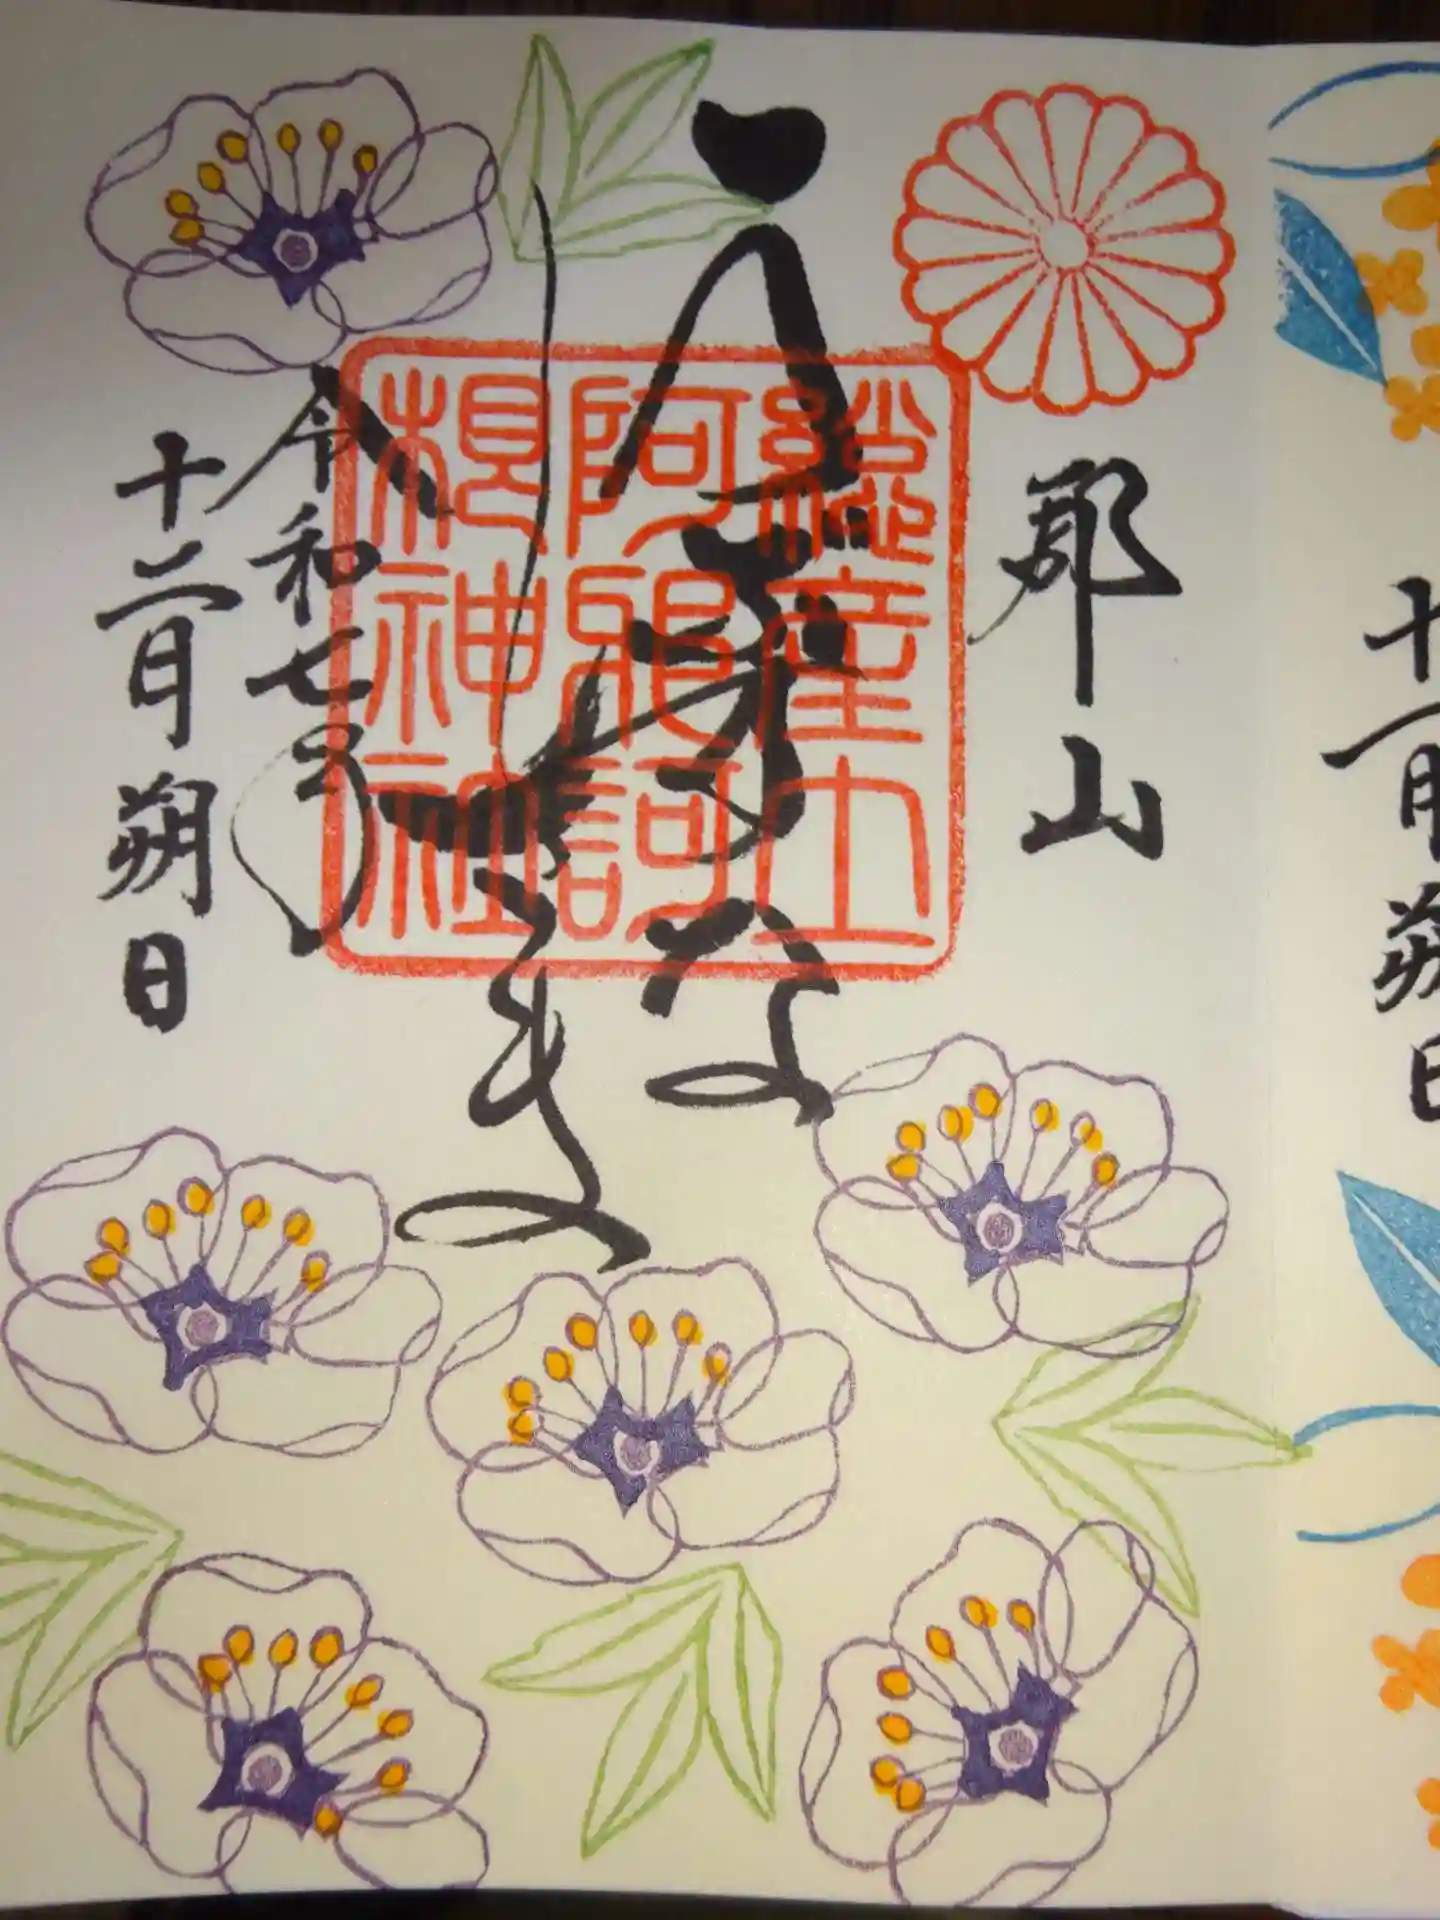 郡山
総産土
阿邪訶
根神社
令和七年
十二月朔日
十一月朔日